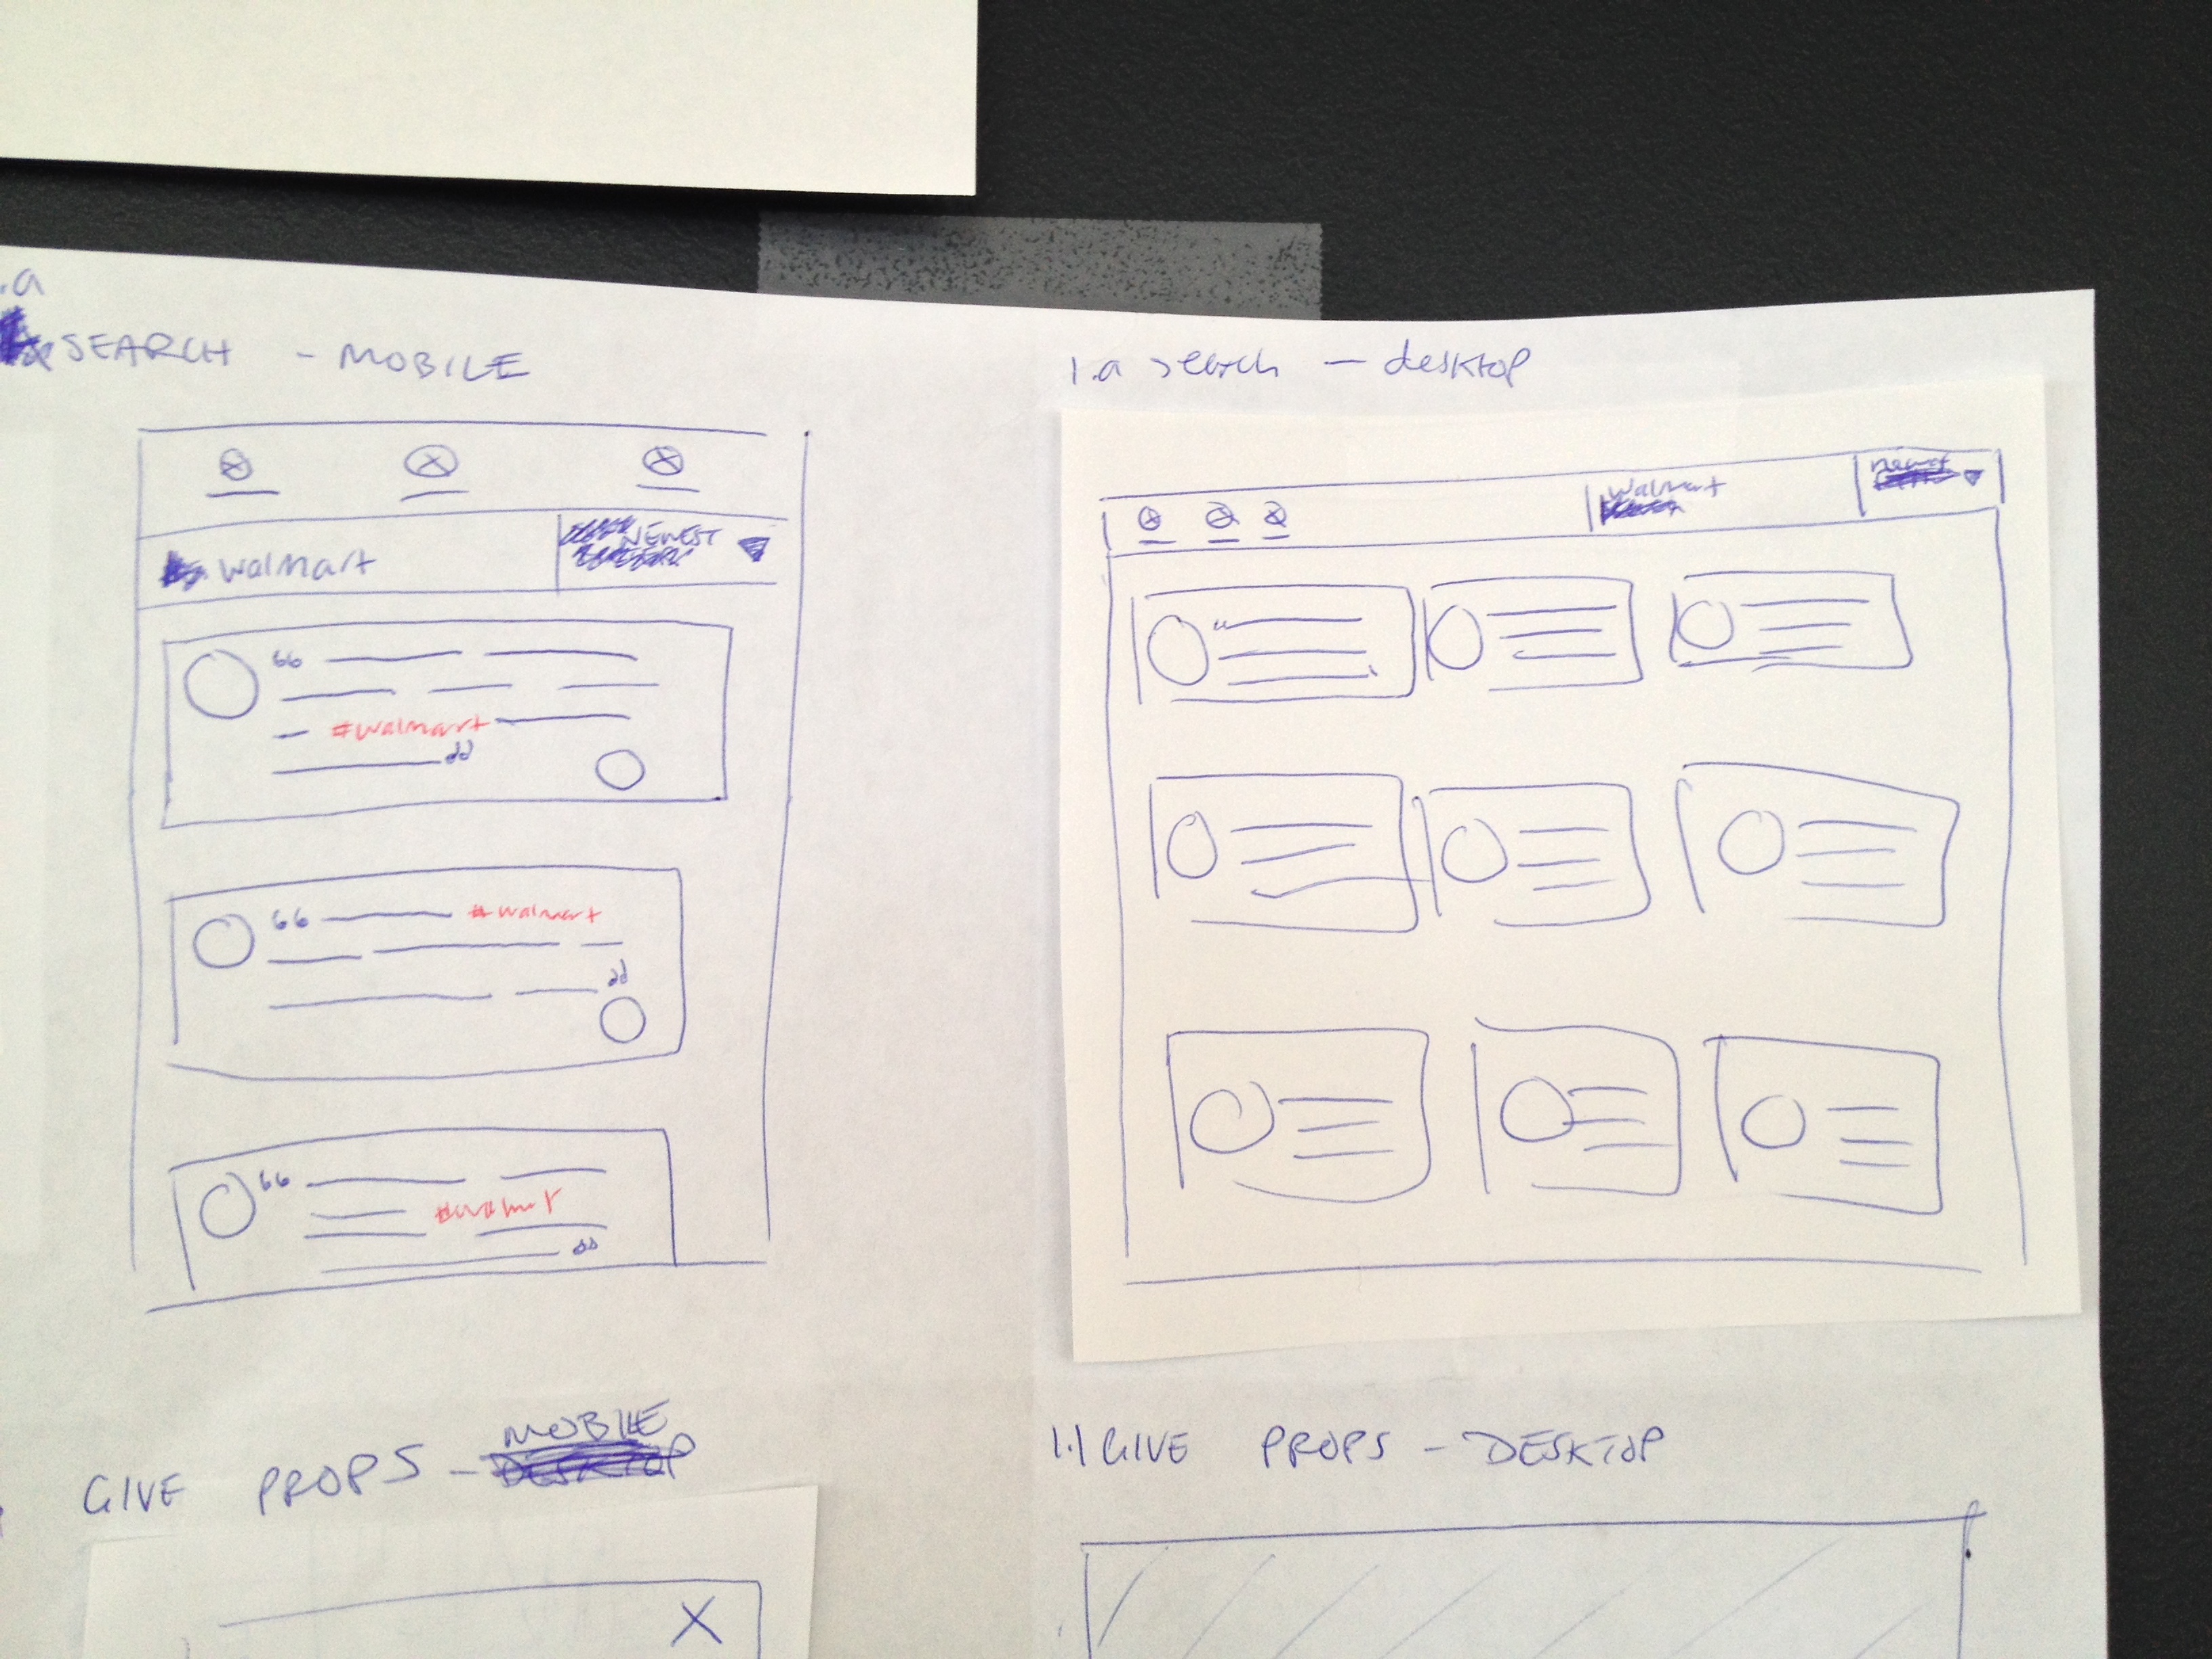 .a
SEARCH - MOBILE
Walmart
NEWEST
#walmart
#walmart
#walmart
1.a search - desktop
Walmart
newest
GIVE PROPS - MOBILE
1.1 GIVE PROPS - DESKTOP
X